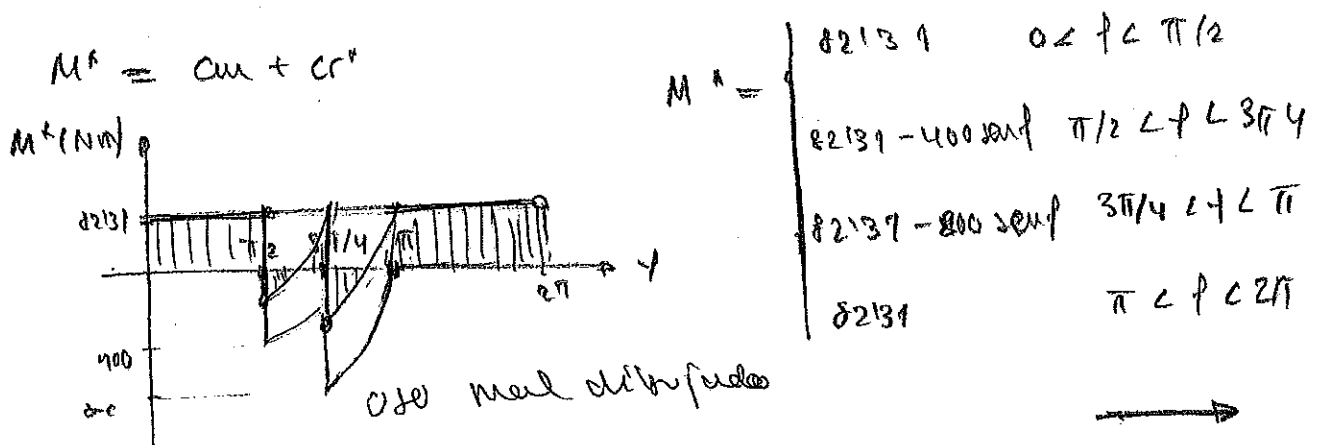 M* = cm + cr*
M*(Nm)
82'31
π/2
3π/4
π
2π
φ
400
800
ojo mal dibujado
M* =
82'31 0 < φ < π/2
82'31 - 400 senφ π/2 < φ < 3π 4
82'31 - 800 senφ 3π/4 < φ < π
82'31 π < φ < 2π